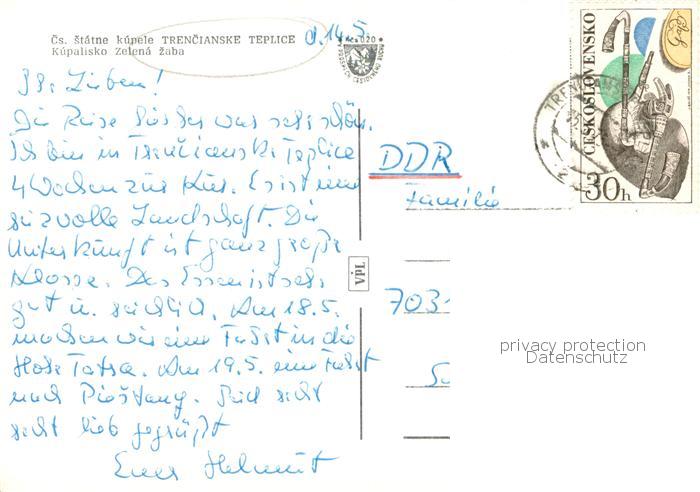 Čs. štátne kúpele TRENČIANSKE TEPLICE
Kúpalisko Zelená žaba
d. 14.5.
Ihr Lieben!
Die Reise hierher war sehr schön.
Ich bin in Trenčianske Teplice
4 Wochen zur Kur. Es ist eine
reizvolle Landschaft. Die
Unterkunft ist ganz große
Klasse. Das Essen ist sehr
gut u. reichlich. Am 18.5.
machen wir eine Fahrt in die
Hohe Tatra. Am 19.5. eine Fahrt
nach Pieštany. Seid recht
recht lieb gegrüßt
Euer Helmut
VPL
ČESKOSLOVENSKO
30h
DDR
Familie
703
privacy protection
Datenschutz